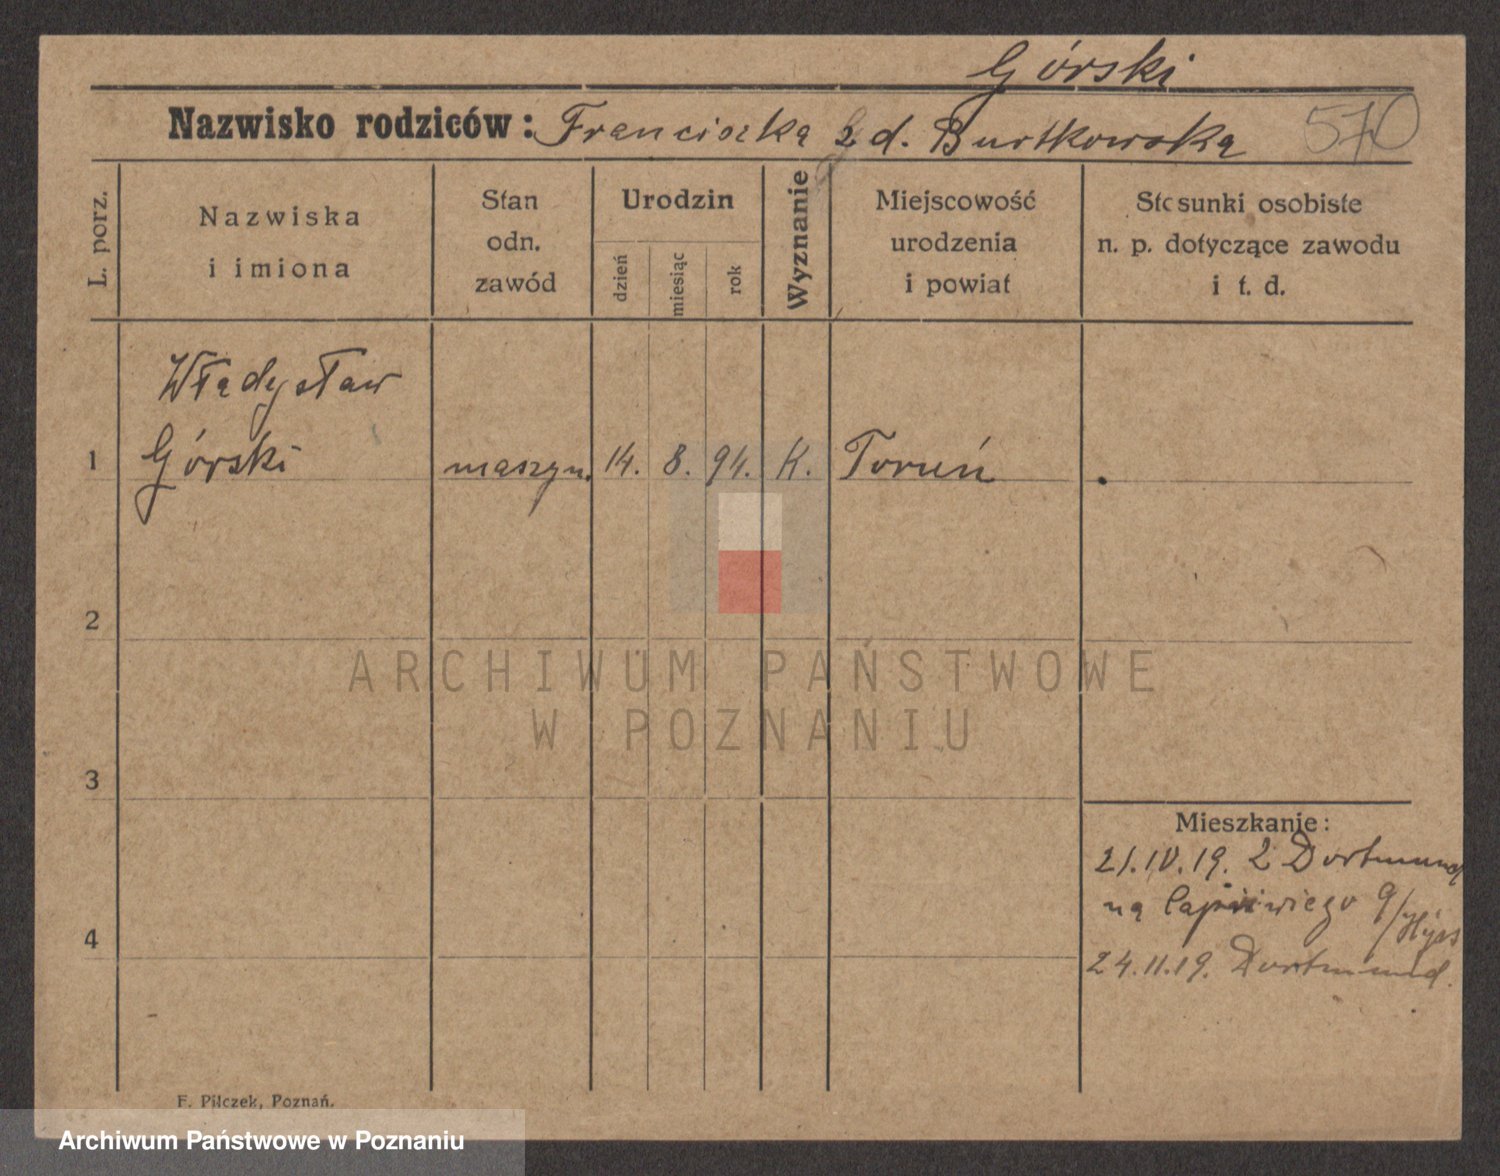 Górski
Nazwisko rodziców: Franciszka z d. Burtkowska 570
L. porz.
Nazwiska
i imiona
Stan
odn.
zawód
Urodzin
dzień
miesiąc
rok
Wyznanie
Miejscowość
urodzenia
i powiat
Stosunki osobiste
n. p. dotyczące zawodu
i t. d.
Władysław
1 Górski maszyn. 14. 8. 94. K. Toruń
2
ARCHIWUM PAŃSTWOWE
W POZNANIU
3
Mieszkanie:
21.IV.19. z Dortmund
na 9/
4
24.11.19. Dortmund.
F. Pilczek, Poznań.
Archiwum Państwowe w Poznaniu